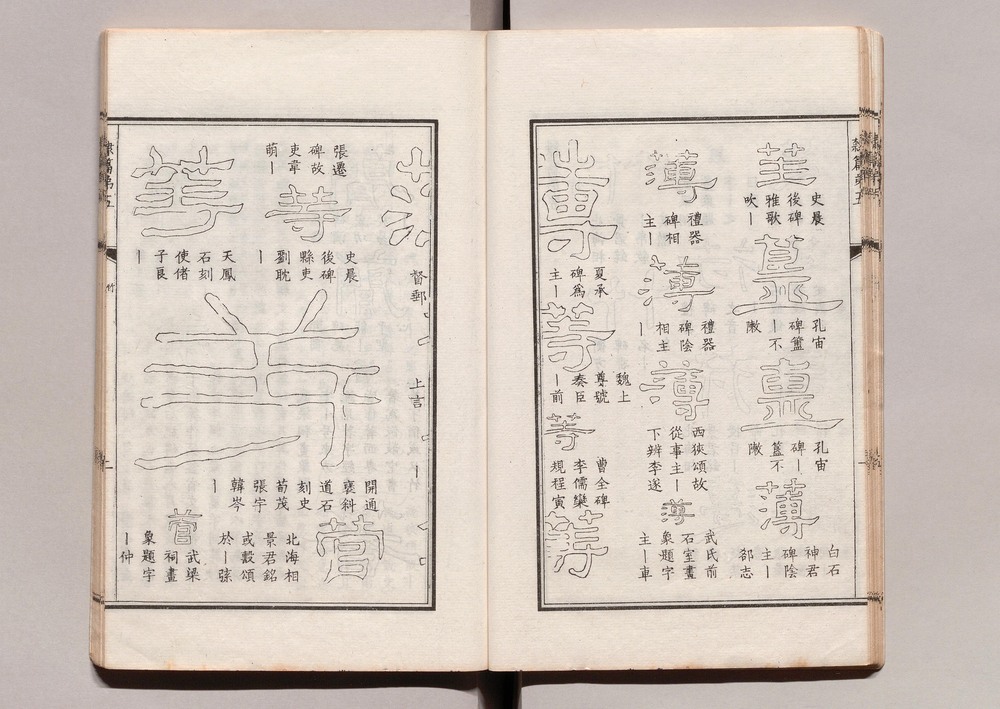 隸篇第五
笙
史晨
後碑
雅歌
吹丨
簋
孔宙
碑簠
丨不
敶
簠
孔宙
碑丨
簋不
敶
薄
白石
神君
碑陰
主丨
郤志
薄
禮器
碑相
主丨
薄
禮器
碑陰
相主
丨
薄
西狹頌故
從事主丨
下辨李遂
薄
武氏前
石室畫
象題字
主丨車
夏承
碑為
主丨
等
魏上
尊號
奏臣
丨前
等
曹全碑
李儒欒
規程寅
等
督郵
上言
張遷
碑故
吏韋
萌丨
等
史晨
後碑
縣吏
劉耽
丨
等
天鳳
石刻
使偖
子良
丨
開通
褒斜
道石
刻史
荀茂
張宇
韓岑
丨
管
北海相
景君銘
或轂頌
於丨弦
管
武梁
祠畫
象題字
丨仲
隸篇第五
竹